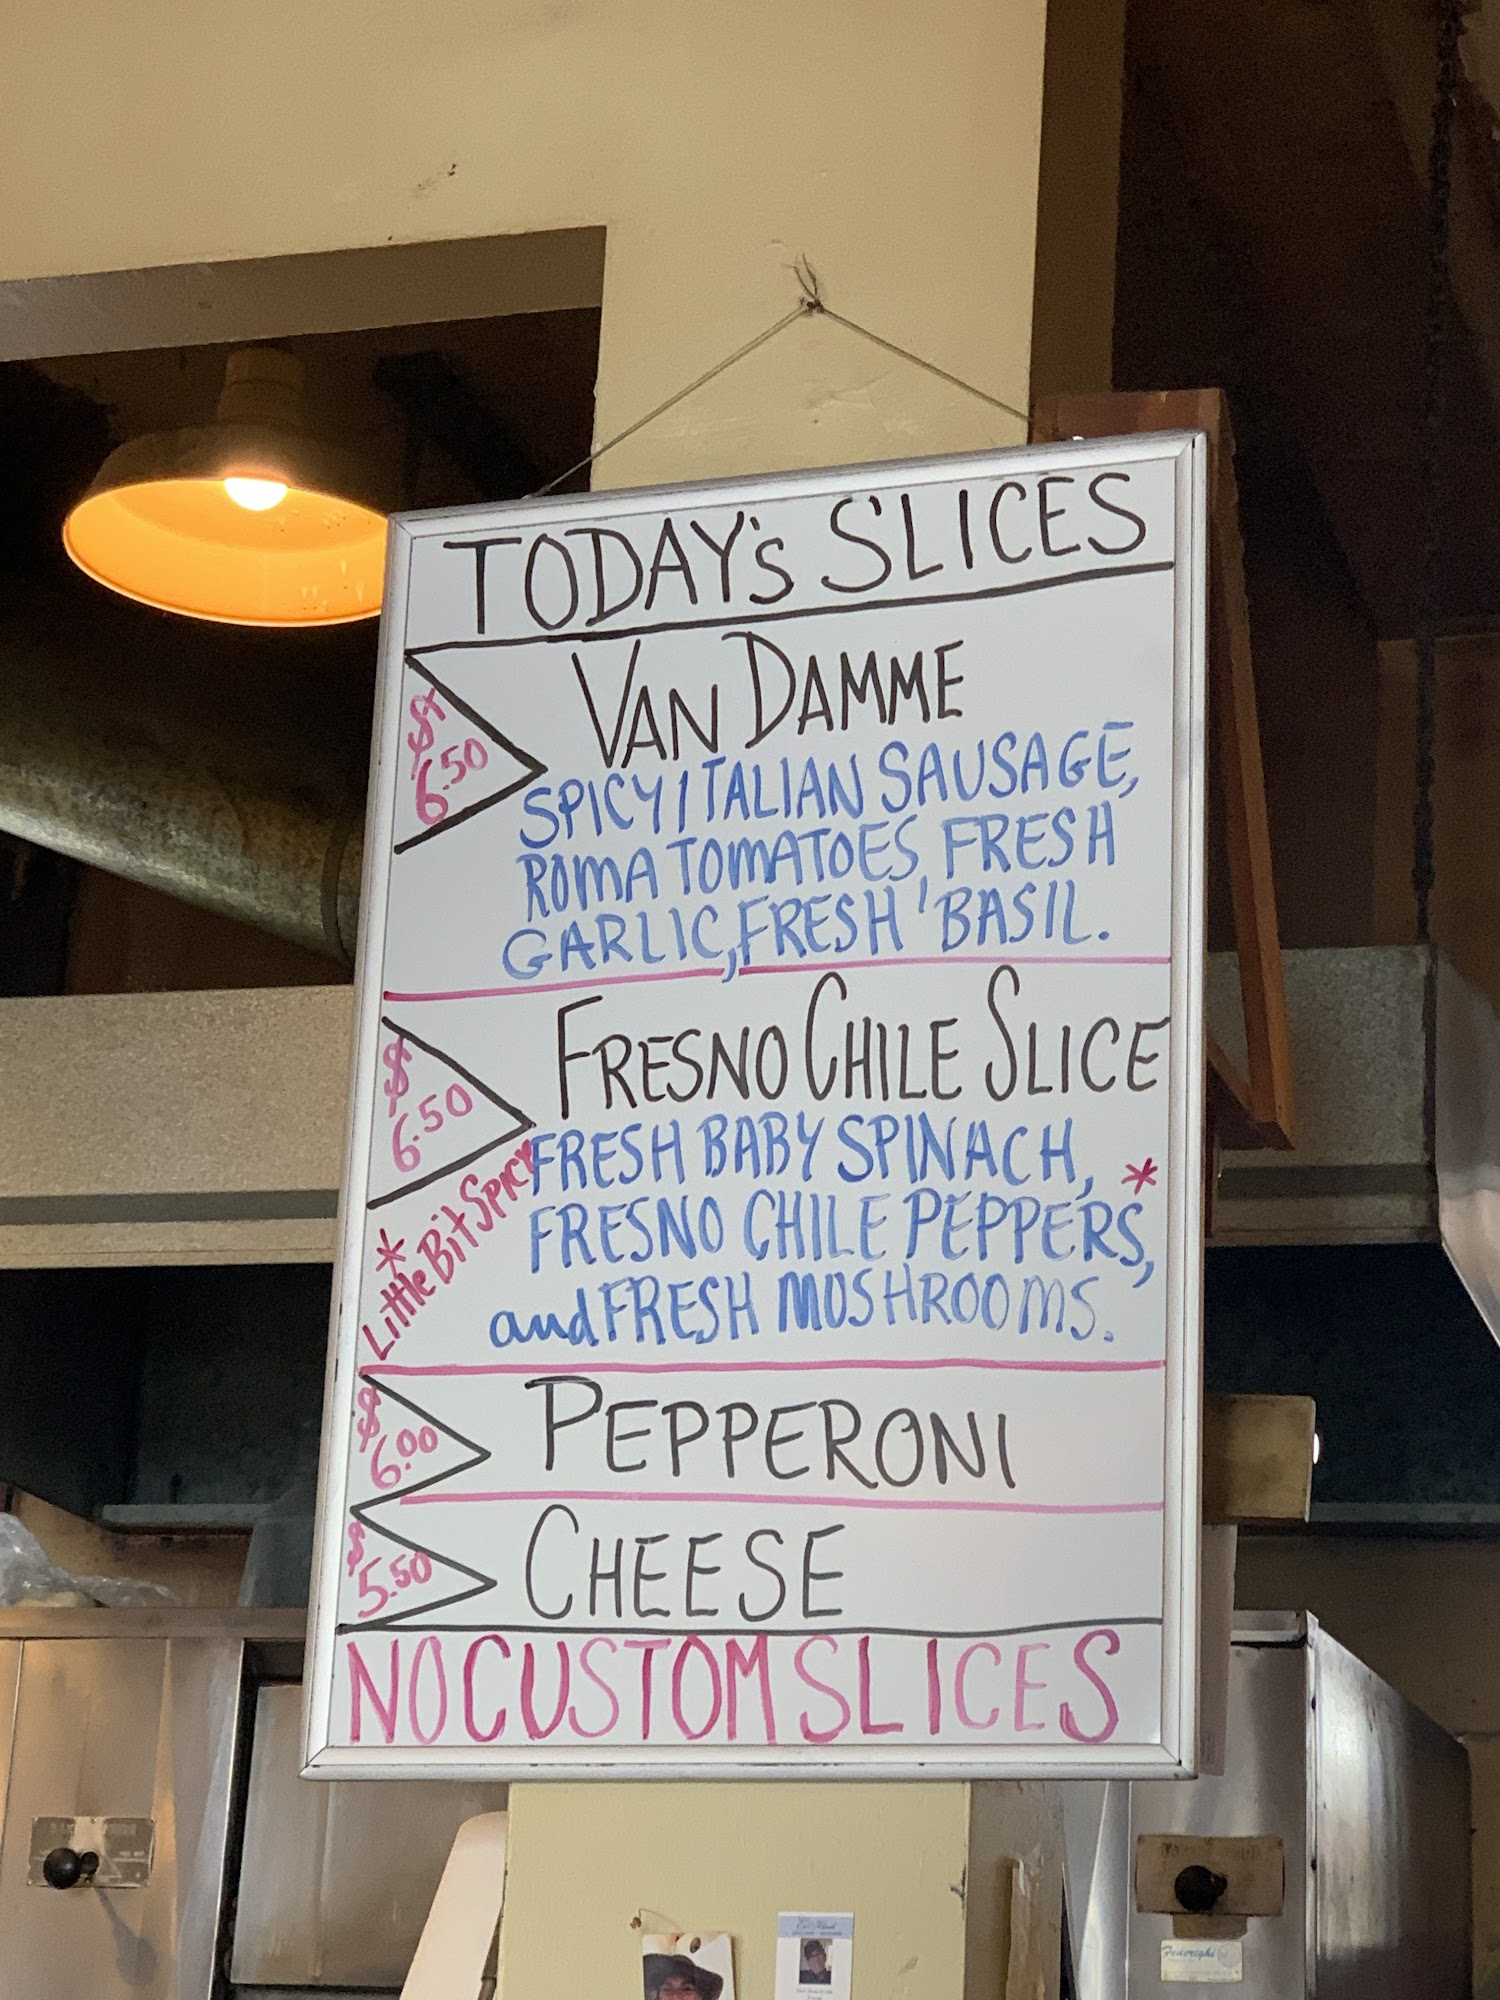 TODAY's SLICES
$6.50
VAN DAMME
SPICY ITALIAN SAUSAGE,
ROMA TOMATOES, FRESH
GARLIC, FRESH BASIL.
$6.50
FRESNO CHILE SLICE
FRESH BABY SPINACH,
FRESNO CHILE PEPPERS,*
and FRESH MUSHROOMS.
* Little Bit SPICY
$6.00
PEPPERONI
$5.50
CHEESE
NO CUSTOM SLICES